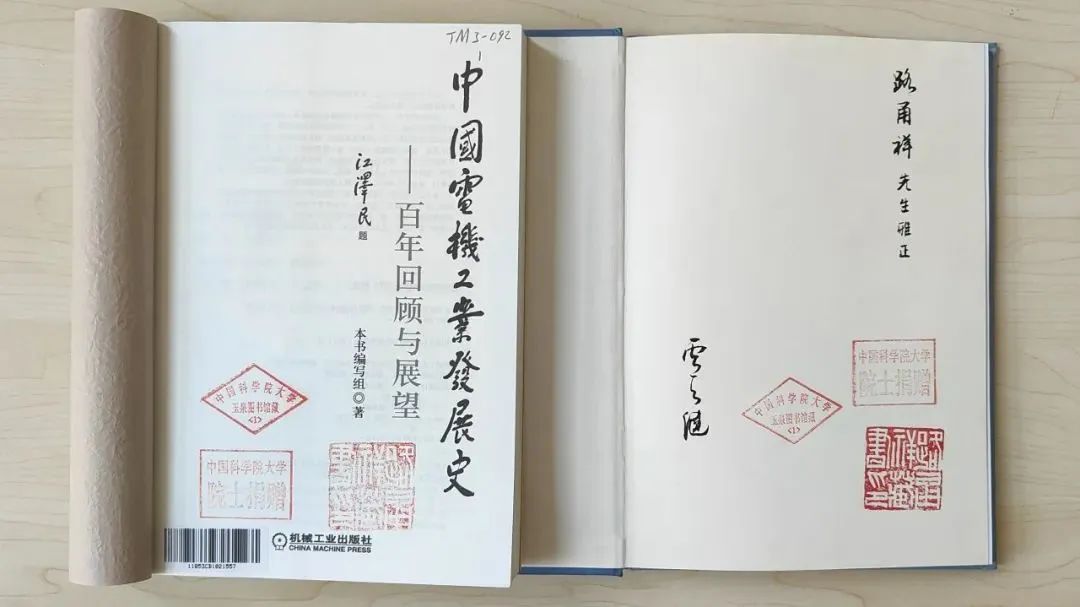 TM3-092
中國電機工業發展史
——百年回顾与展望
江澤民 题
本书编写组◎著
中国科学院大学
玉泉图书馆藏
<1>
中国科学院大学
院士捐赠
机械工业出版社
CHINA MACHINE PRESS
路甬祥先生雅正
中国科学院大学
玉泉图书馆藏
<1>
中国科学院大学
院士捐赠